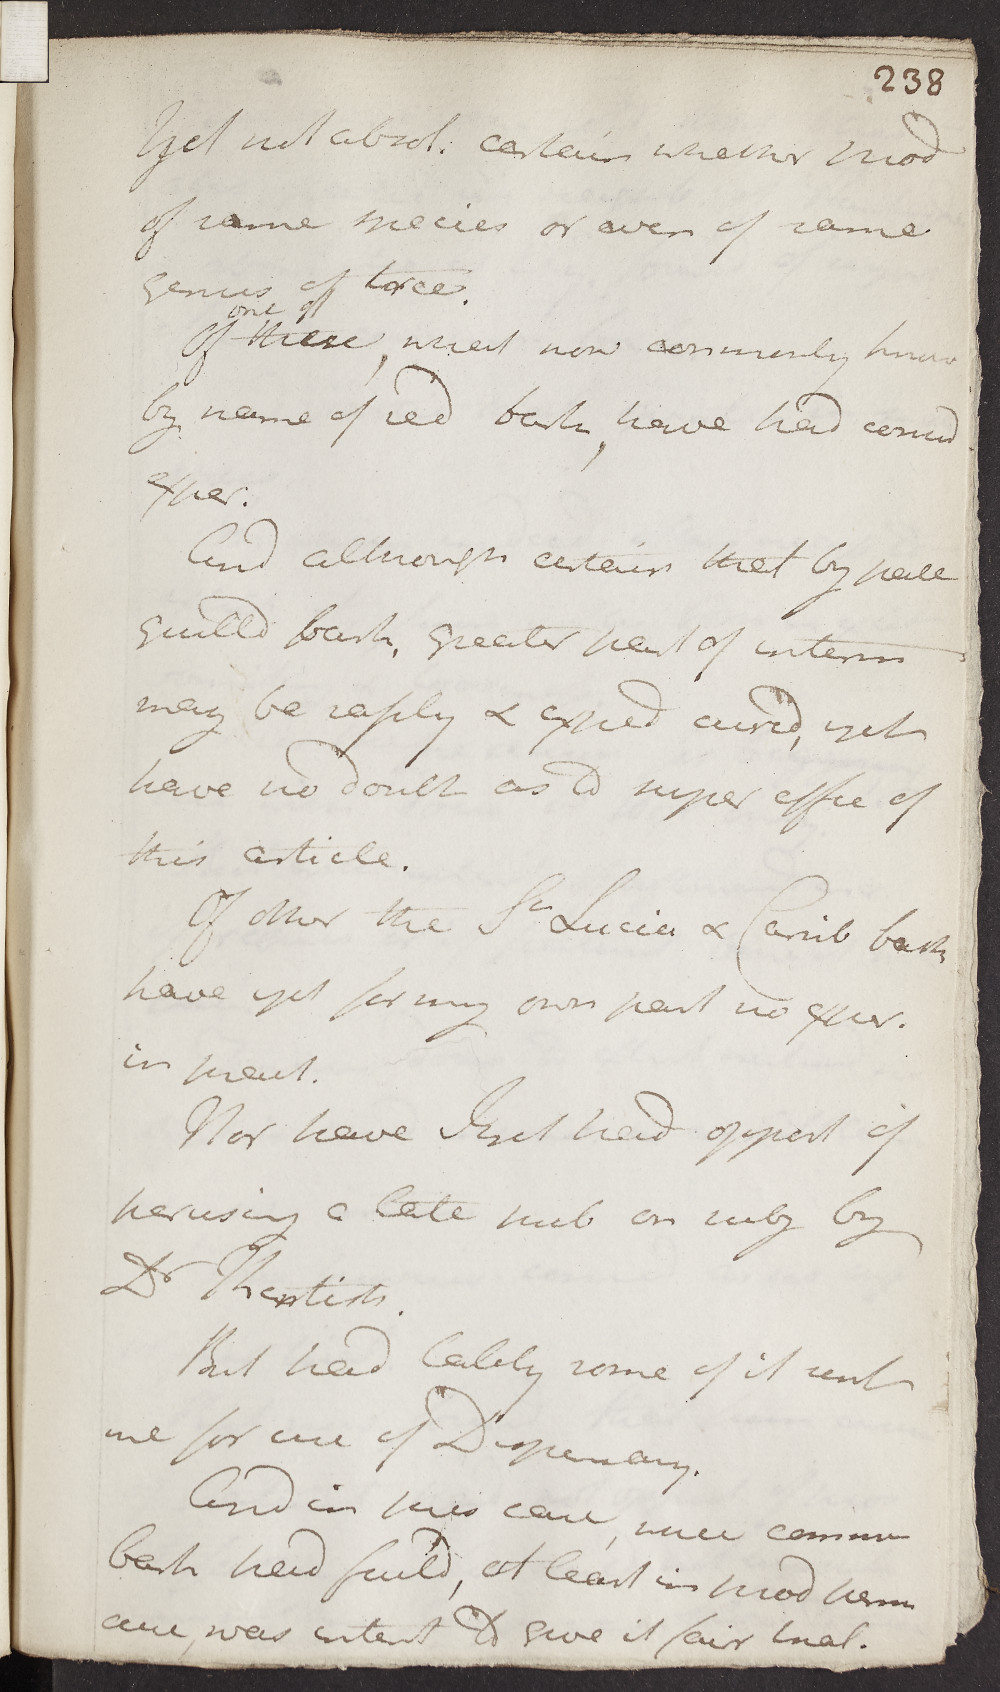 238
Yet not absol. certain whether prod
of same species or even of same
genus of trees.
one of
Of these, what now commonly know
by name of red bark, have had consid
exper.
And although certain that by pale
quilld bark, greater part of interm
may be safely & exped cured, yet
have no doubt as to super effic of
this article.
Of other the St Lucia & Carib bark
have yet for my own part no exper.
in pract.
Nor have I yet had opport of
perusing a late pub on subj by
Dr Kentish.
But had lately some of it sent
me for use of Dispensary.
And in this case, where common
bark had faild, at least in prod perm
cure, was intent to give it fair trial.